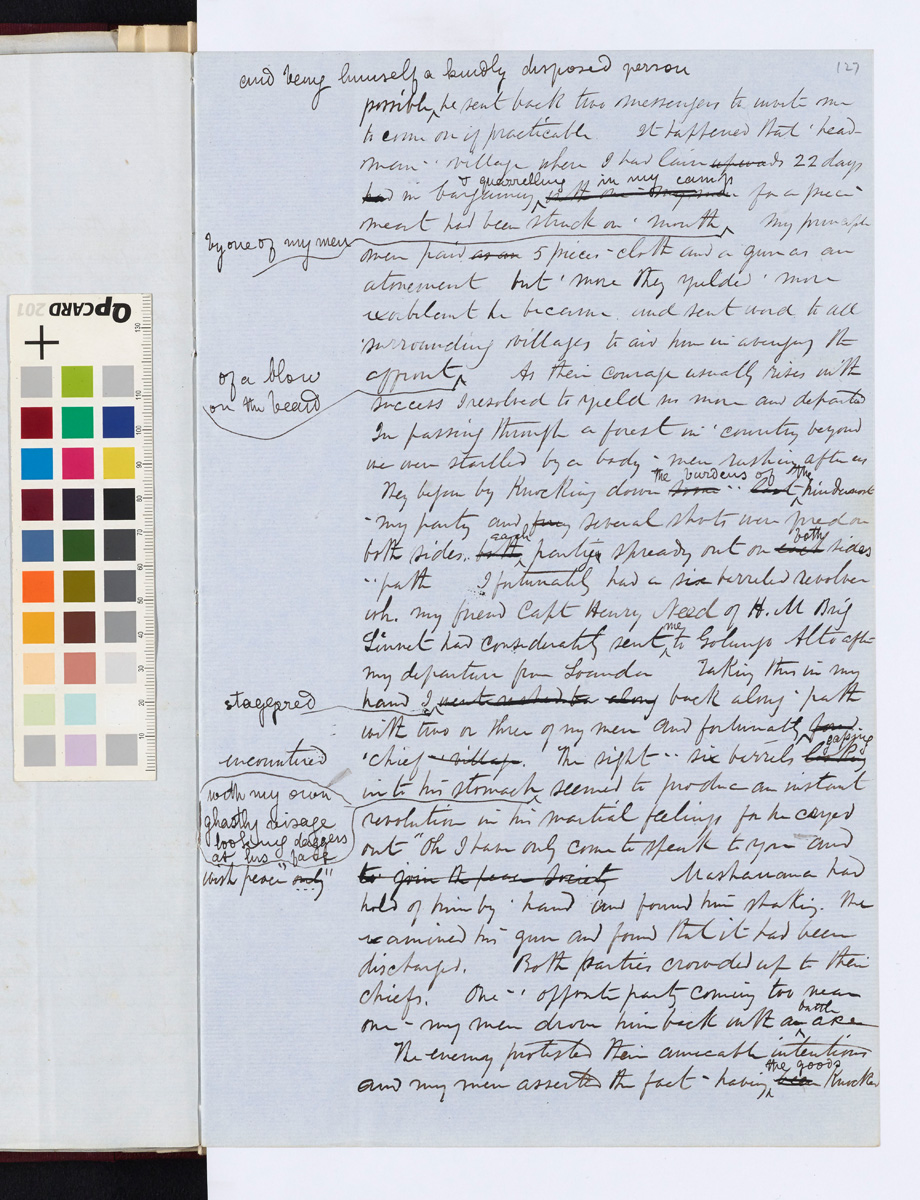 127
and being himself a kindly disposed person
possible he sent back two messengers to invite me
to come on if practicable It happened that ' head
man - ' village where I had lain upwards 22 days
had in bargaining & quarrelling in my camp for a piece
meat had been struck on ' mouth My principal
by one of my men
men paid as an 5 pieces - cloth and a gun as an
atonement but ' more they yielded ' more
exorbitant he became and sent word to all
' surrounding villages to aid him in avenging the
affront As their courage usually rises with
of a blow
on the beard
success I resolved to yield no more and departed
In passing through a forest in ' country beyond
we were startled by a body - men rushing after us
They began by knocking down the burdens of some - ' last the hindermost
- my party and several shots were fired on
both sides. both each parties spreading out on each both sides
- ' path I fortunately had a six barreled revolver
wh. my friend Capt Henry Need of H. M Brig
Linnet had considerately sent me to Golungo Alto after
my departure from Loanda Taking this in my
hand I went along back along ' path
staggered
with two or three of my men and fortunately found
encountered
' chief - village. The sight - ' six barrels looking gaping
in to his stomach seemed to produce an instant
with my own
ghastly visage
looking daggers
at his face
revolution in his martial feelings for he cryed
out "Oh I have only come to speak to you and
wish peace "only"
to join the peace Society Mashauana had
hold of him by ' hand and found him shaking. We
examined his gun and found that it had been
discharged. Both parties crowded up to their
chiefs. One - ' opposite party coming too near
one - my men drove him back with a battle axe
The enemy protested their amicable intentions
and my men asserted the fact - having the goods been knocked
QPCARD 201
130
110
100
90
70
50
30
10